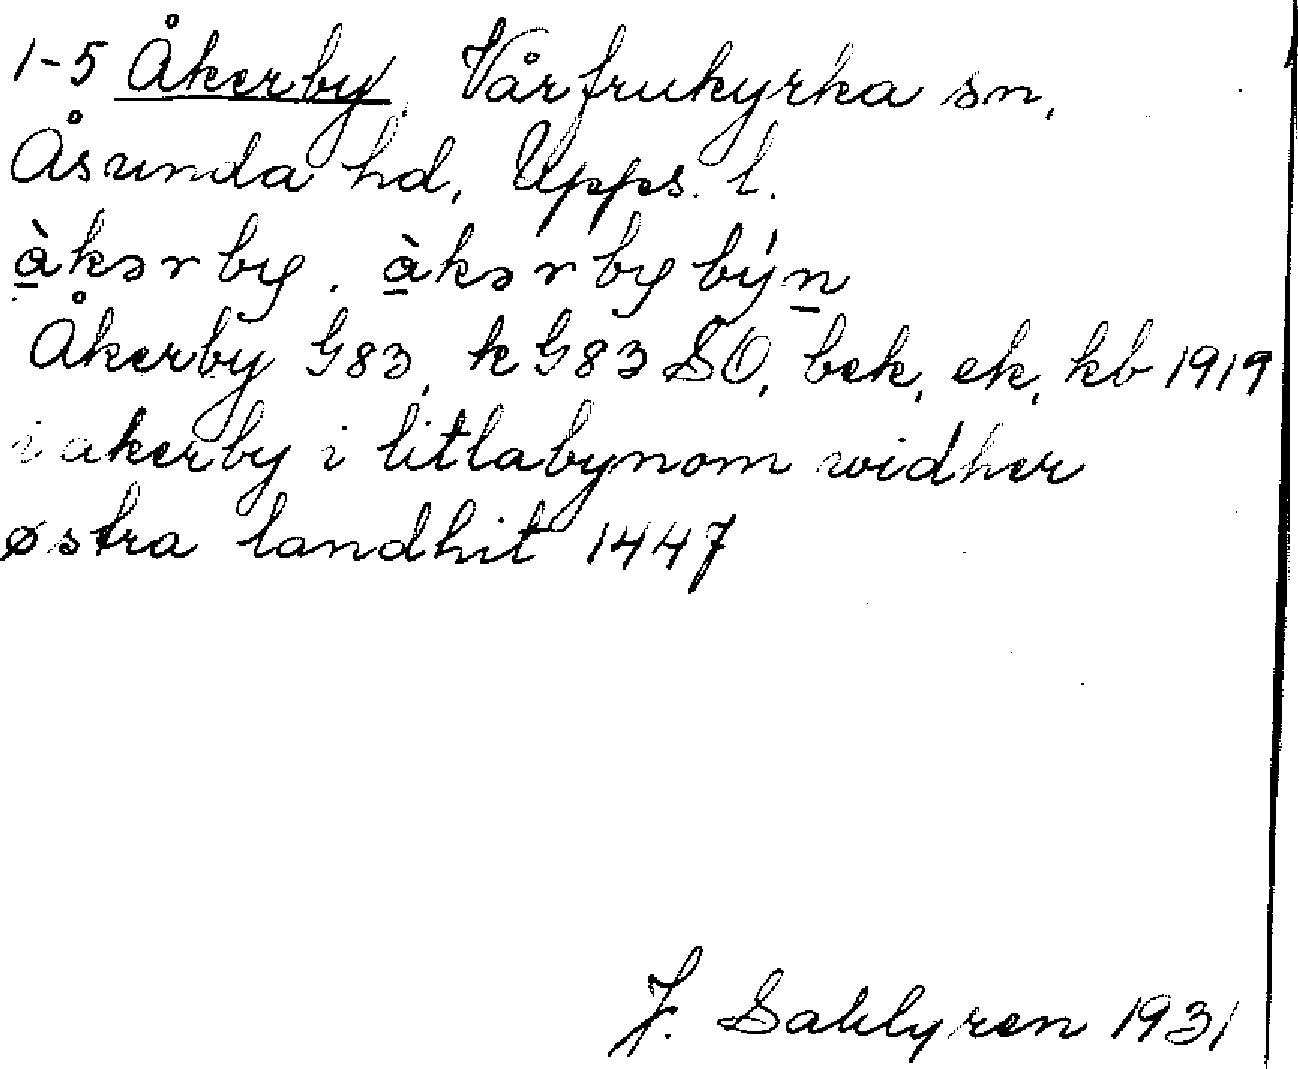 1-5 Åkerby, Vårfrukyrka sn,
Åsunda hd, Upps. l.
àkərby. àkərbybýn
Åkerby G83, k G83 SO, bek, ek, kb 1919
i akerby i litlabynom widher
østra landhit 1447
J. Sahlgren 1931